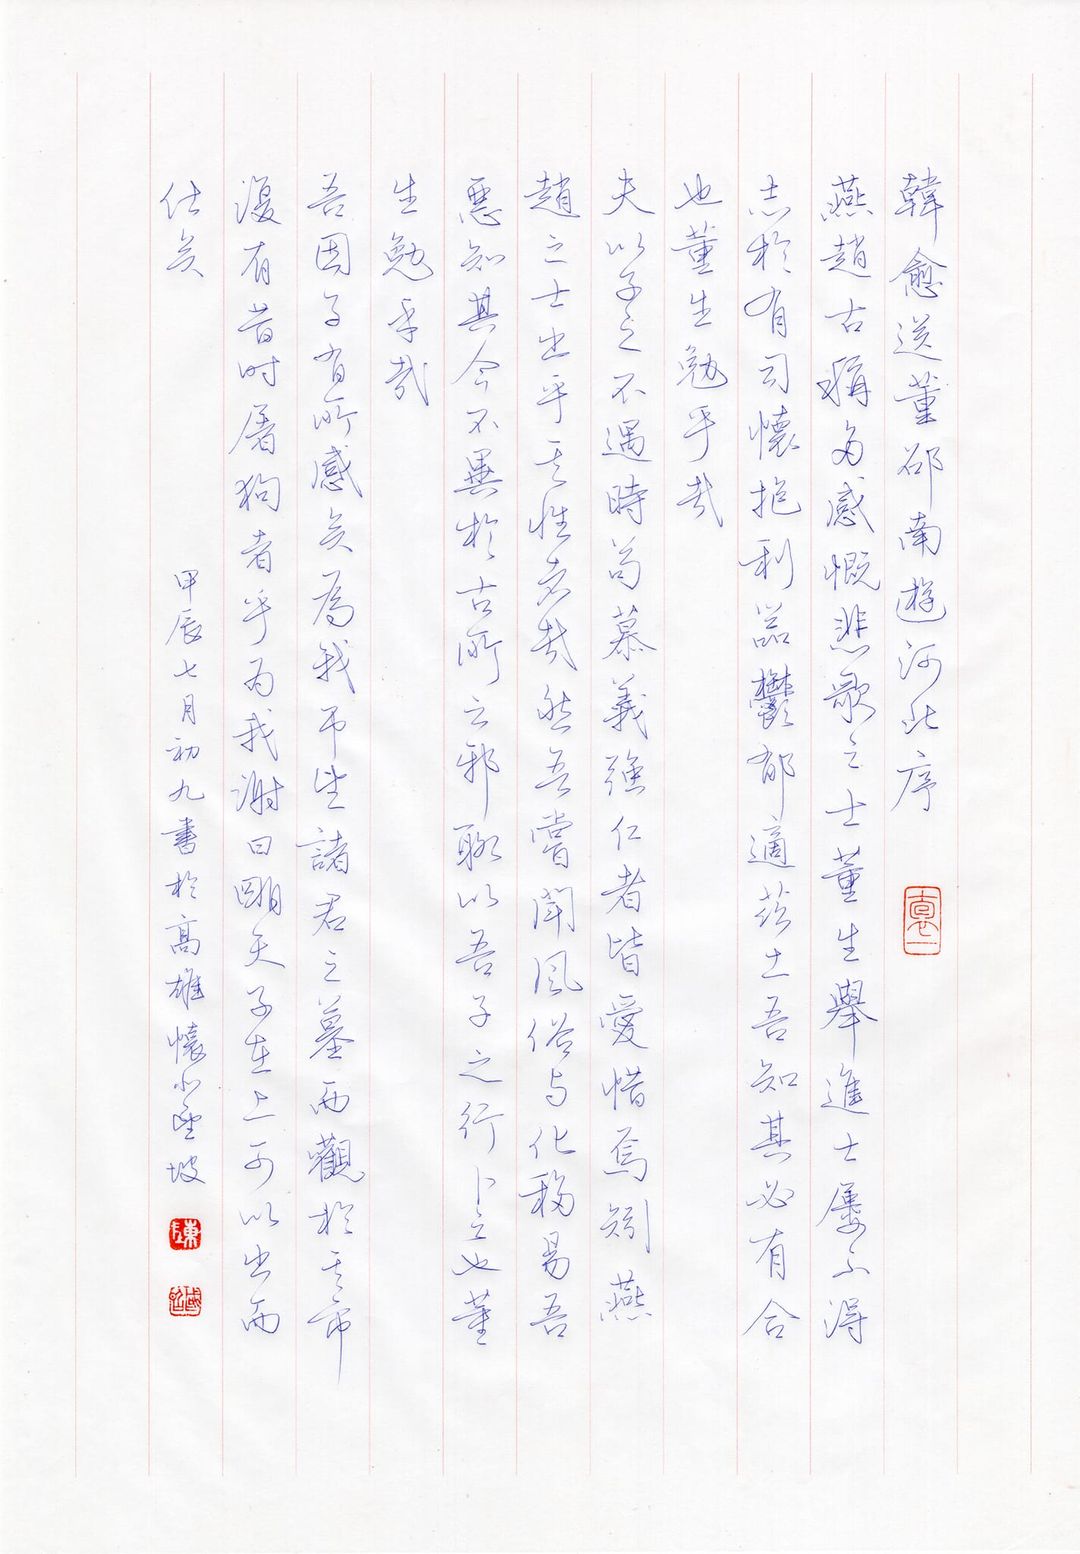 韓愈送董邵南遊河北序
燕趙古稱多感慨悲歌之士董生舉進士屢不得
志於有司懷抱利器鬱郁適茲土吾知其必有合
也董生勉乎哉
夫以子之不遇時苟慕義強仁者皆愛惜焉矧燕
趙之士出乎其性者哉然吾嘗聞風俗与化移易吾
惡知其今不異於古所云邪聊以吾子之行卜之也董
生勉乎哉
吾因子有所感矣為我弔望諸君之墓而觀於其市
復有昔时屠狗者乎为我謝曰明天子在上可以出而
仕矣
甲辰七月初九書於高雄懷小坡